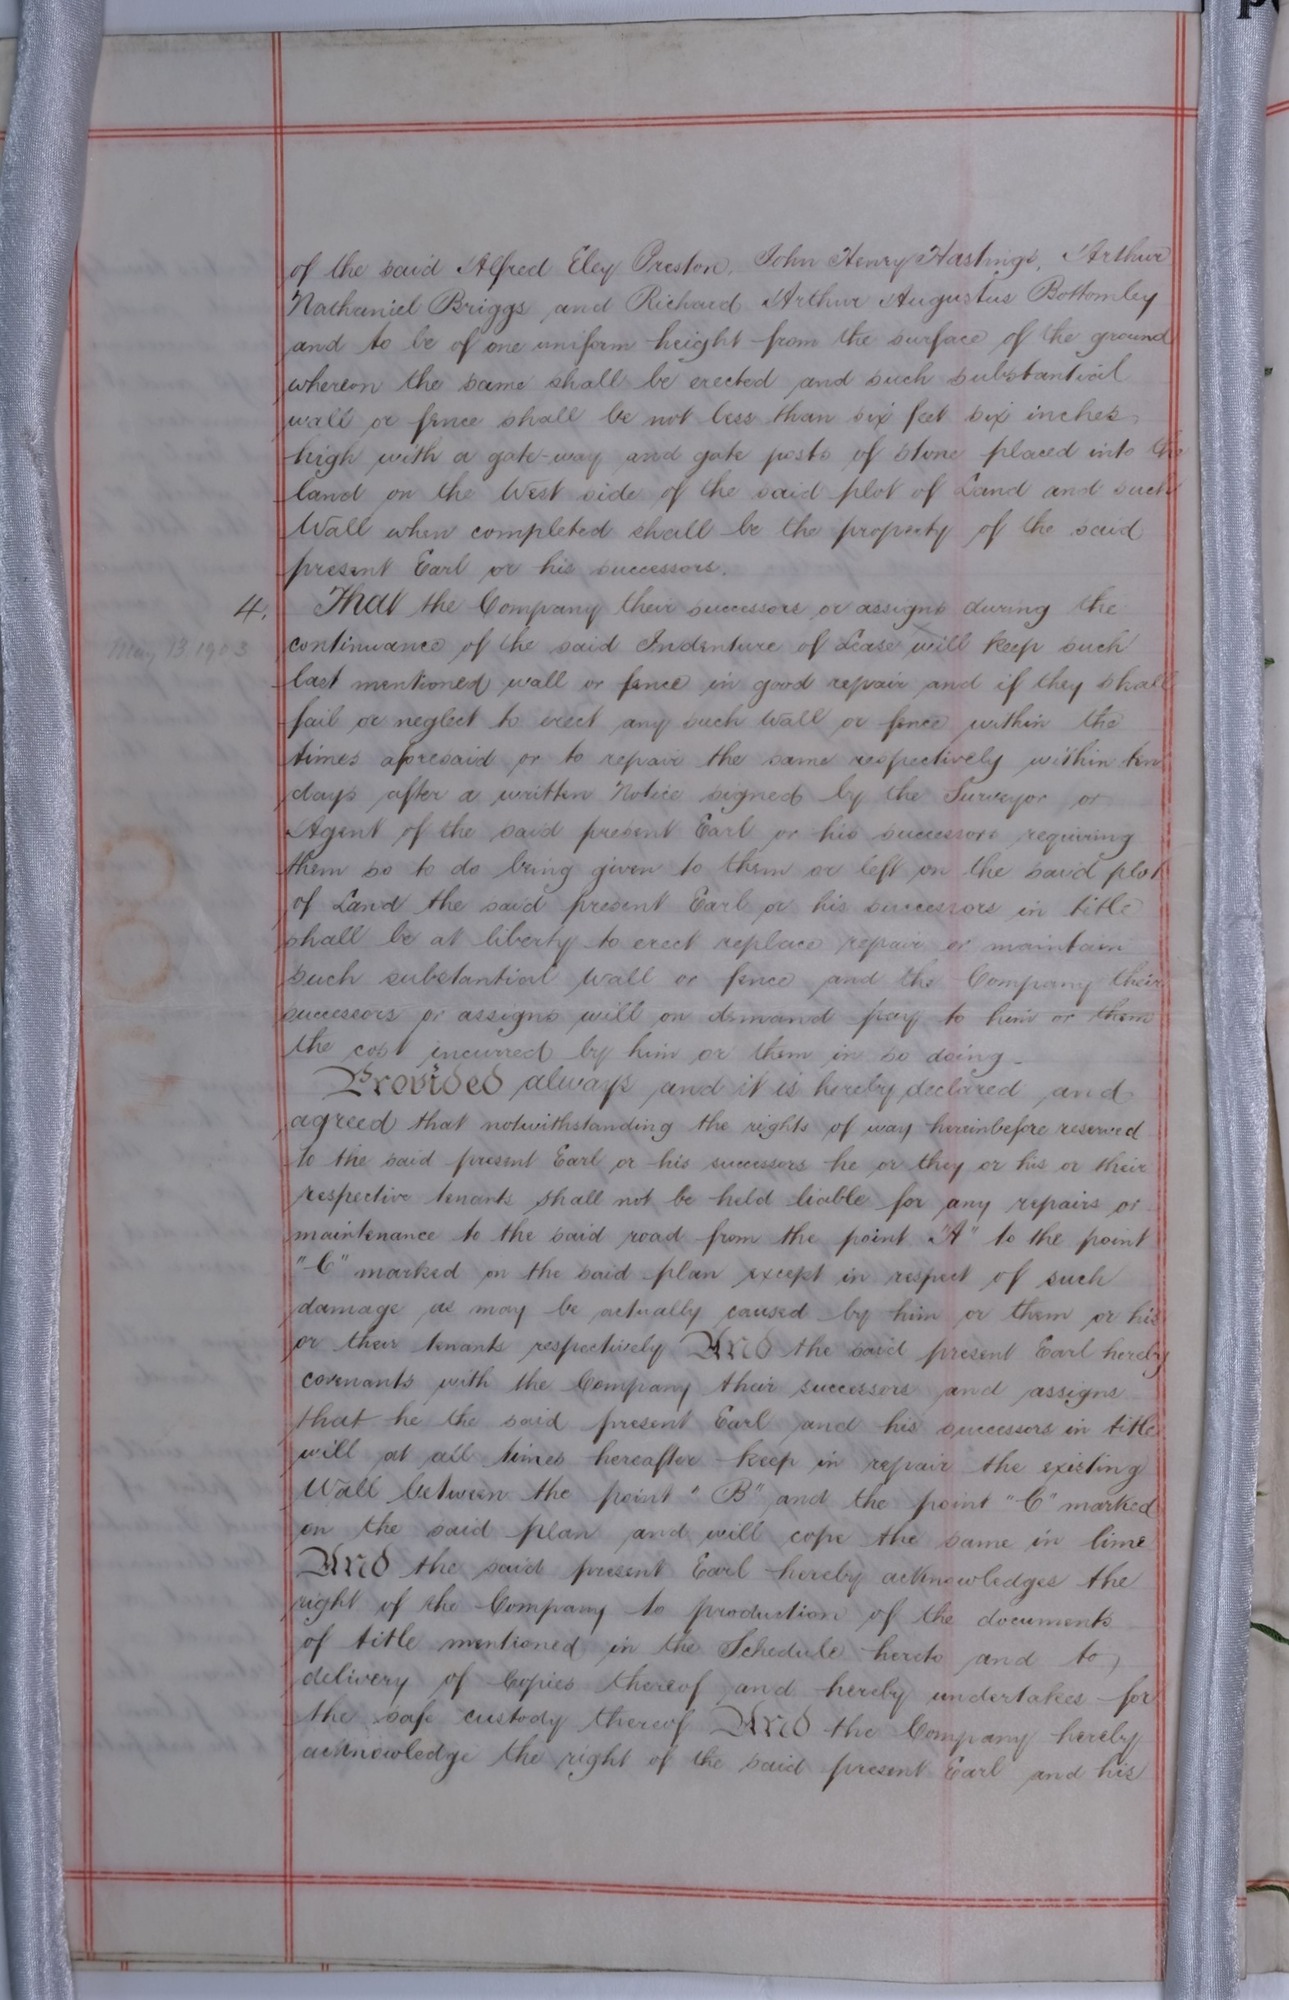 of the said Alfred Eley Preston, John Henry Hastings, Arthur
Nathaniel Briggs and Richard Arthur Augustus Bottomley
and to be of one uniform height from the surface of the ground
whereon the same shall be erected and such substantial
wall or fence shall be not less than six feet six inches
high with a gate-way and gate posts of stone placed into the
land on the West side of the said plot of Land and such
Wall when completed shall be the property of the said
present Earl or his successors.
4. That the Company their successors or assigns during the
May 13 1903
continuance of the said Indenture of Lease will keep such
last mentioned wall or fence in good repair and if they shall
fail or neglect to erect any such Wall or fence within the
times aforesaid or to repair the same respectively within ten
days after a written Notice signed by the Surveyor or
Agent of the said present Earl or his successors requiring
them so to do being given to them or left on the said plot
of Land the said present Earl or his successors in title
shall be at liberty to erect replace repair or maintain
such substantial wall or fence and the Company their
successors or assigns will on demand pay to him or them
the cost incurred by him or them in so doing
Provided always and it is hereby declared and
agreed that notwithstanding the rights of way hereinbefore reserved
to the said present Earl or his successors he or they or his or their
respective tenants shall not be held liable for any repairs or
maintenance to the said road from the point "A" to the point
"C" marked on the said plan except in respect of such
damage as may be actually caused by him or them or his
or their tenants respectively And the said present Earl hereby
covenants with the Company their successors and assigns
that he the said present Earl and his successors in title
will at all times hereafter keep in repair the existing
Wall between the point "B" and the point "C" marked
on the said plan and will cope the same in lime
And the said present Earl hereby acknowledges the
right of the Company to production of the documents
of title mentioned in the Schedule hereto and to
delivery of Copies thereof and hereby undertakes for
the safe custody thereof And the Company hereby
acknowledge the right of the said present Earl and his